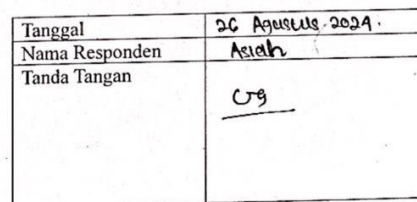 Tanggal 26 Agustus 2024.
Nama Responden Asiah
Tanda Tangan